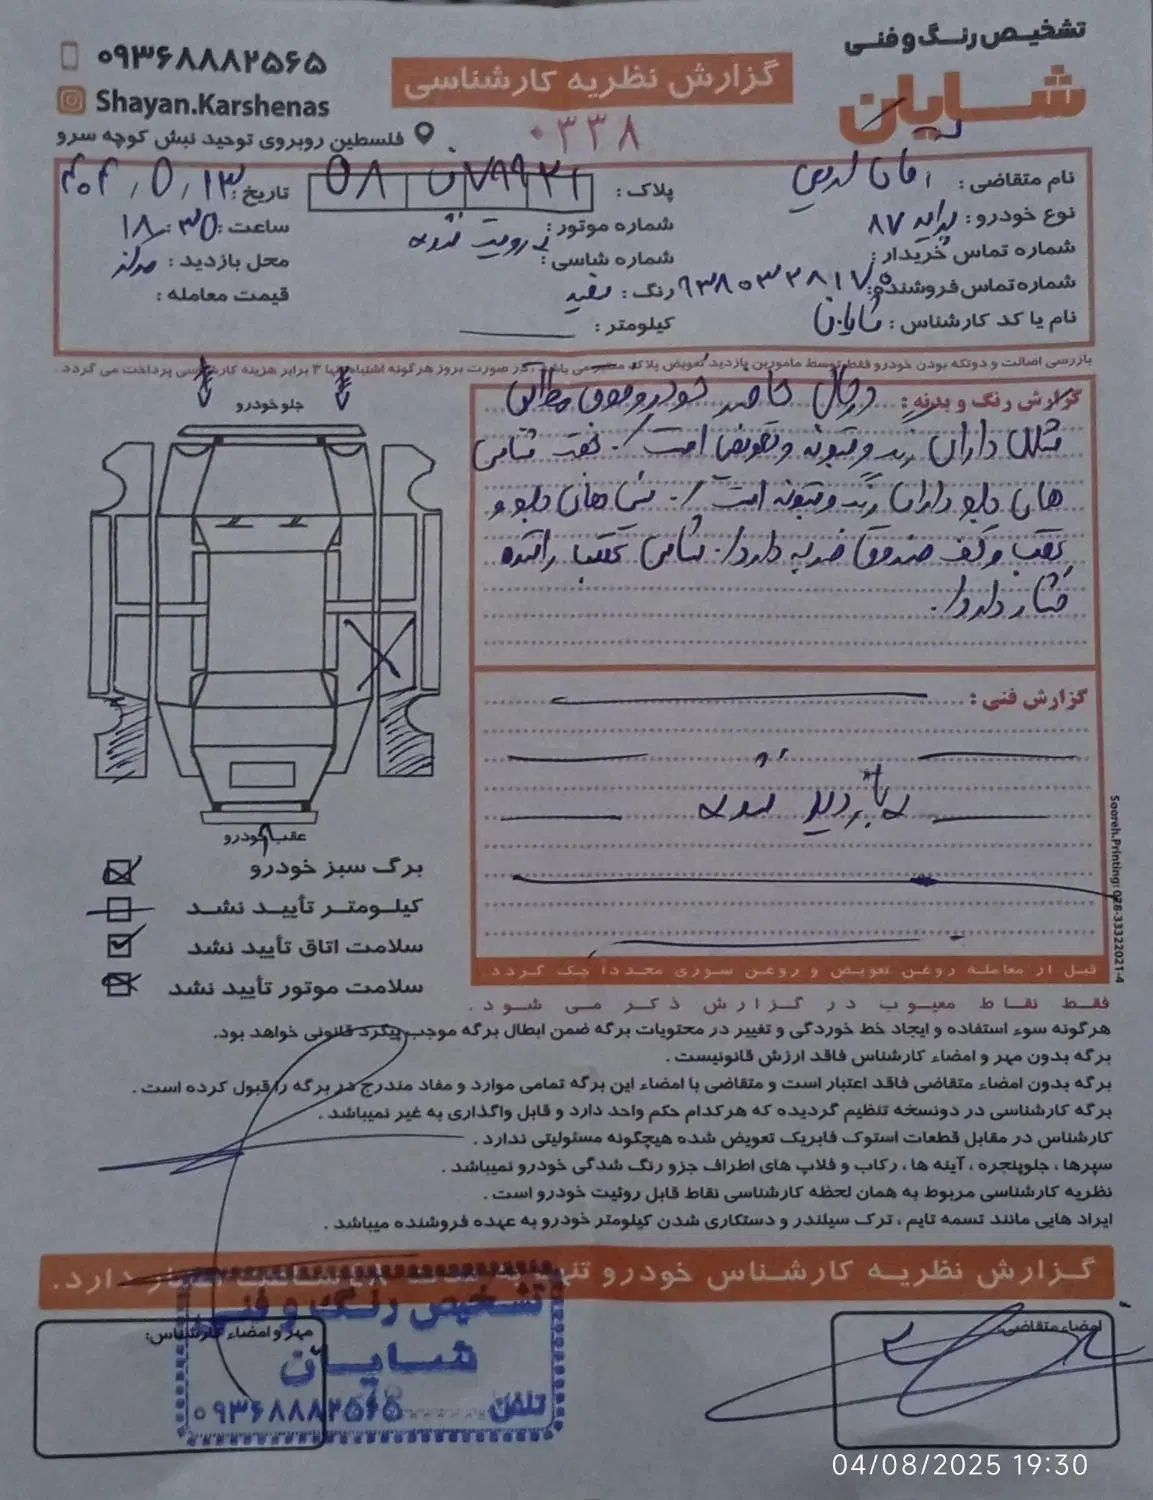 تشخیص رنگ و فنی
شایان
گزارش نظریه کارشناسی
۰۳۳۸
۰۹۳۶۸۸۸۲۵۶۵
Shayan.Karshenas
فلسطین روبروی توحید نبش کوچه سرو
نام متقاضی : آقای
پلاک :
تاریخ : ۴۰۴,۵,۱۳
نوع خودرو : پراید ۸۷
شماره موتور :
ساعت : ۱۸:۳۵
شماره تماس خریدار :
شماره شاسی : رویت نشده
محل بازدید :
شماره تماس فروشنده :
رنگ : سفید
قیمت معامله :
نام یا کد کارشناس : شایان
کیلومتر :
بازرسی اصالت و دوتکه بودن خودرو فقط توسط مامورین بازدید تعویض پلاک معتبر می باشد ، در صورت بروز هرگونه اشتباه تنها ۳ برابر هزینه کارشناسی پرداخت می گردد .
جلو خودرو
گزارش رنگ و بدنه : در حال حاضر خودرو فوق مطابق
شکل دارای رنگ و بتونه و تعویض است ./ جفت شاسی
های جلو دارای رنگ و بتونه است ./ سینی های جلو و
عقب و کف صندوق ضربه دارد ./ شاسی عقب راننده
فشار دارد ./
گزارش فنی :
بازدید نشده
عقب خودرو
برگ سبز خودرو
کیلومتر تأیید نشد
سلامت اتاق تأیید نشد
سلامت موتور تأیید نشد
Sooreh.Printing: 028-33322021-4
قبل از معامله روغن تعویض و روغن سوزی مجدداً چک گردد.
فقط نقاط معیوب در گزارش ذکر می شود .
هرگونه سوء استفاده و ایجاد خط خوردگی و تغییر در محتویات برگه ضمن ابطال برگه موجب پیگرد قانونی خواهد بود.
برگه بدون مهر و امضاء کارشناس فاقد ارزش قانونیست .
برگه بدون امضاء متقاضی فاقد اعتبار است و متقاضی با امضاء این برگه تمامی موارد و مفاد مندرج در برگه را قبول کرده است .
برگه کارشناسی در دونسخه تنظیم گردیده که هرکدام حکم واحد دارد و قابل واگذاری به غیر نمیباشد .
کارشناس در مقابل قطعات استوک فابریک تعویض شده هیچگونه مسئولیتی ندارد .
سپرها ، جلوپنجره ، آینه ها ، رکاب و فلاپ های اطراف جزو رنگ شدگی خودرو نمیباشد .
نظریه کارشناسی مربوط به همان لحظه کارشناسی نقاط قابل روئیت خودرو است .
ایراد هایی مانند تسمه تایم ، ترک سیلندر و دستکاری شدن کیلومتر خودرو به عهده فروشنده میباشد .
گزارش نظریه کارشناس خودرو تنها به مدت ساعت اعتبار دارد.
امضاء متقاضی:
مهر و امضاء کارشناس:
تشخیص رنگ و فنی
شایان
تلفن ۰۹۳۶۸۸۸۲۵۶۵
04/08/2025 19:30